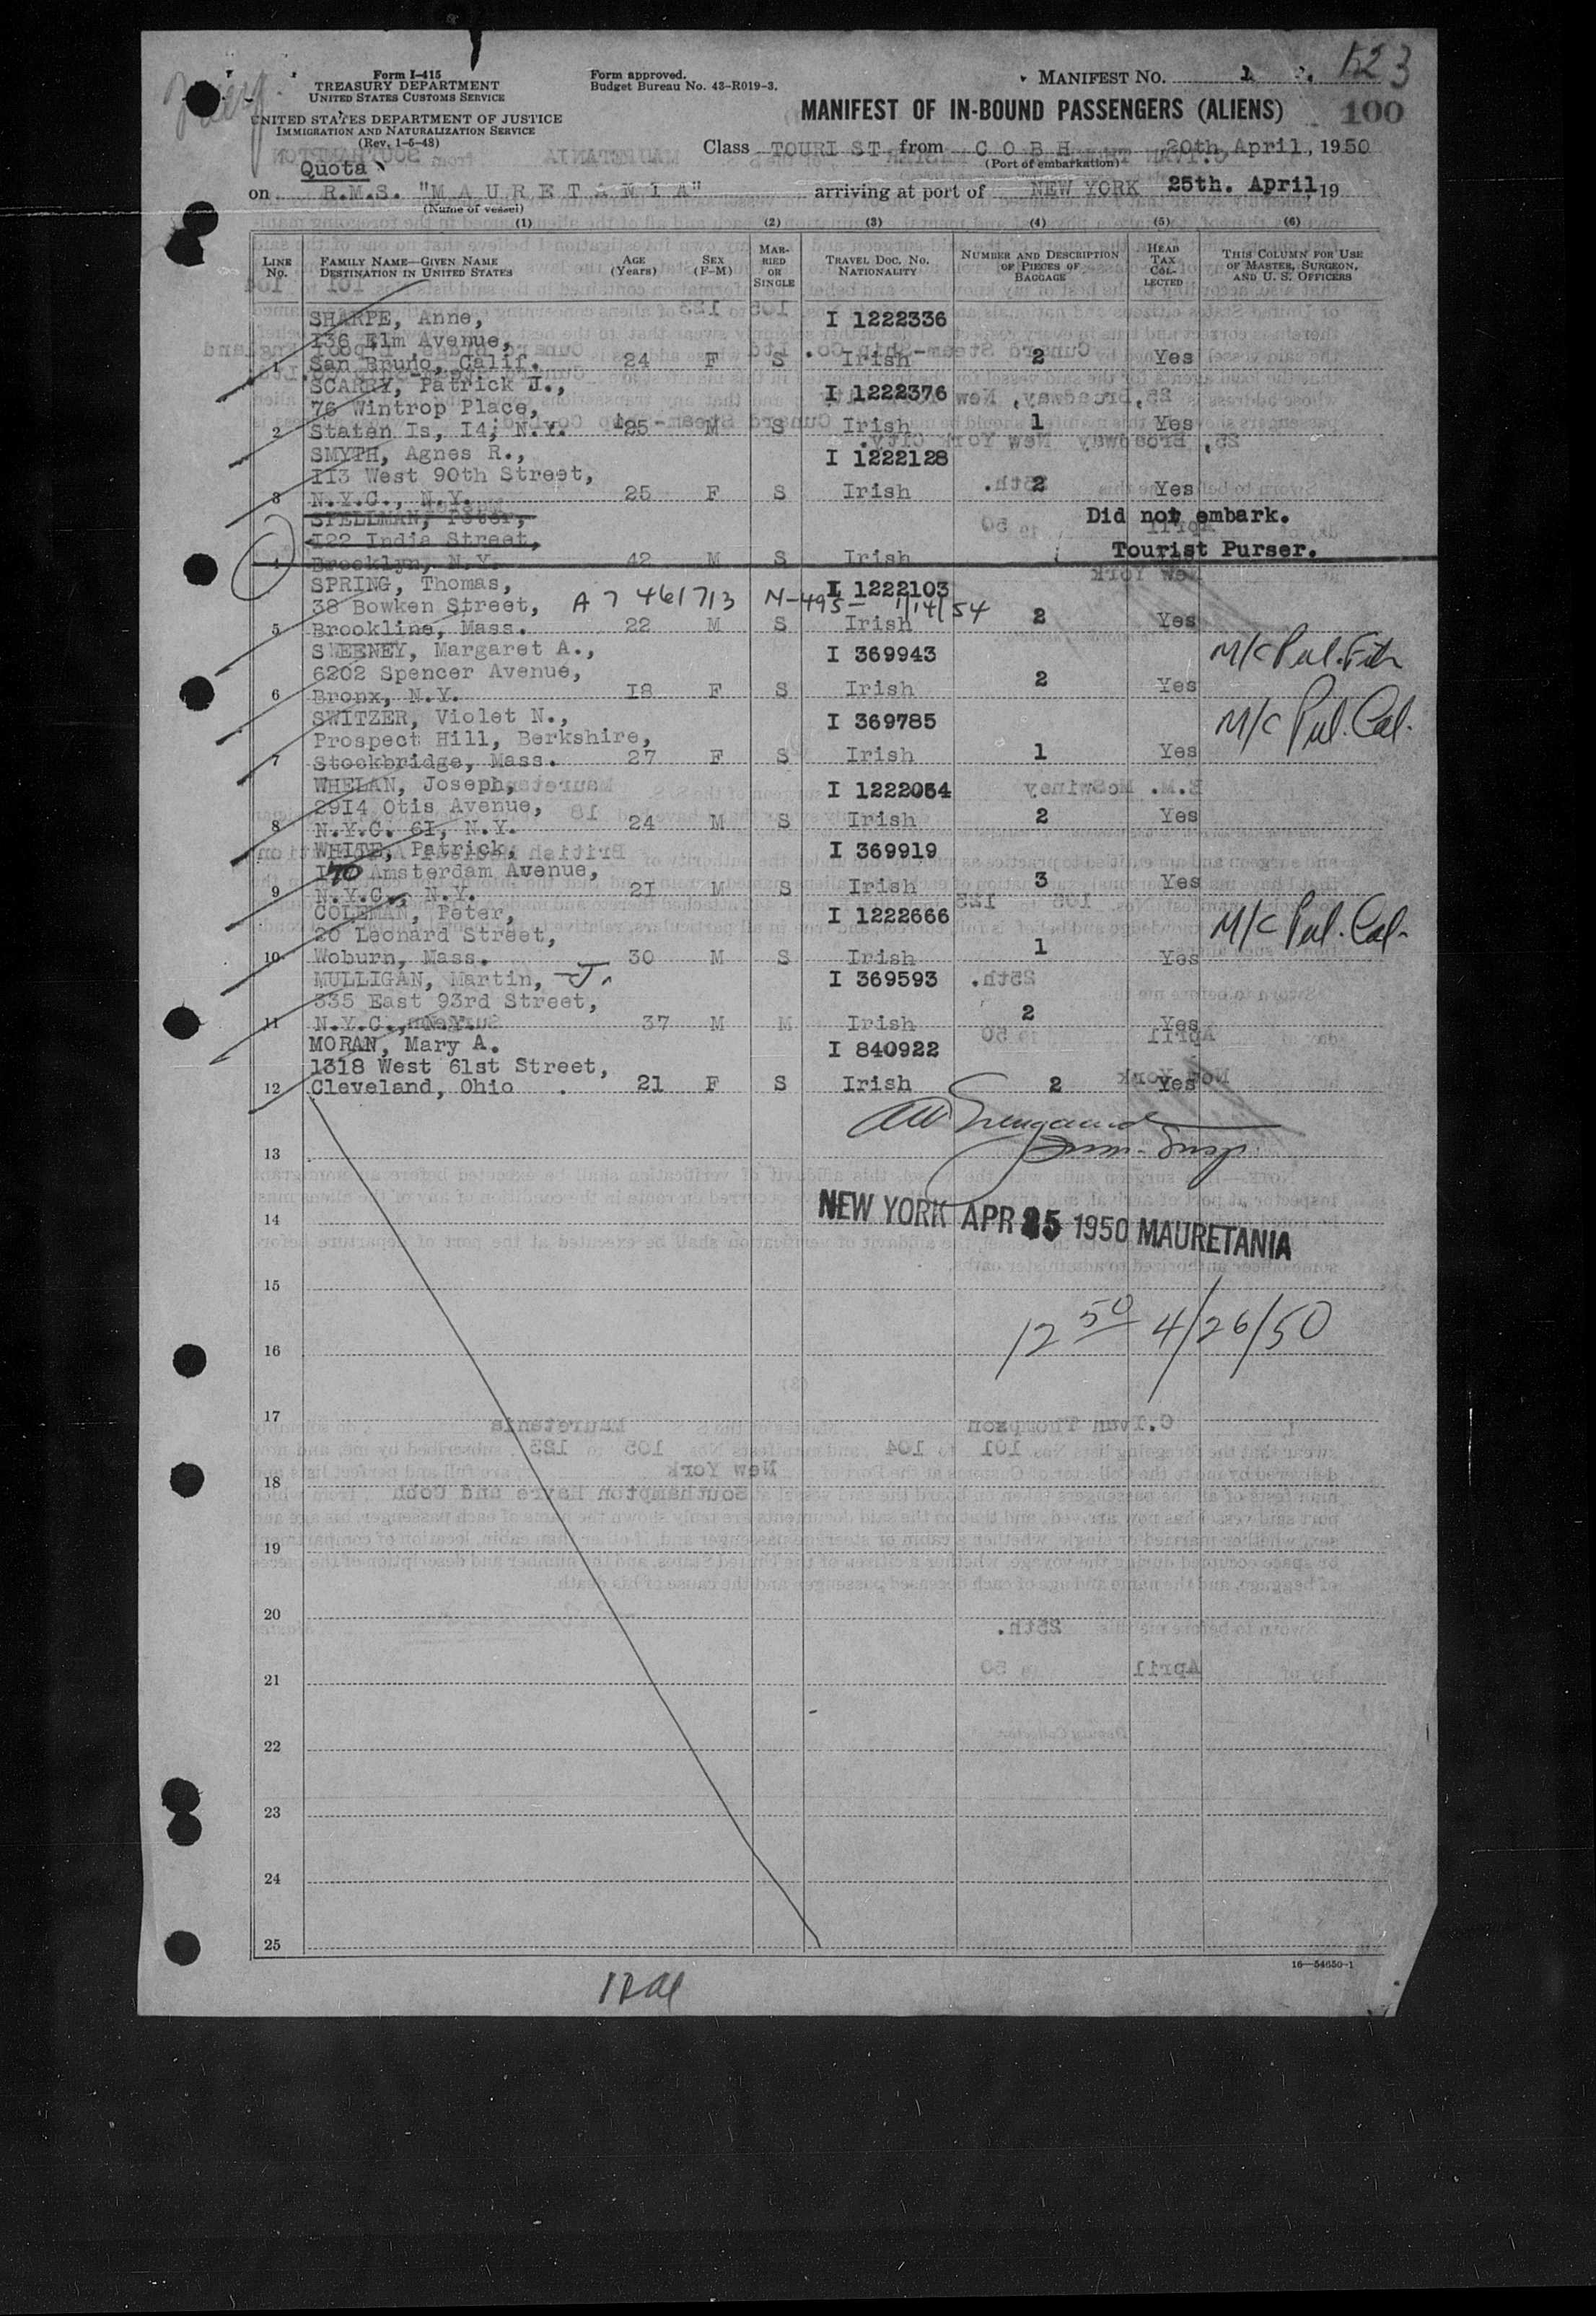 Form I-415
TREASURY DEPARTMENT
UNITED STATES CUSTOMS SERVICE
UNITED STATES DEPARTMENT OF JUSTICE
IMMIGRATION AND NATURALIZATION SERVICE
(Rev. 1-5-48)
Form approved.
Budget Bureau No. 43-R019-3.
MANIFEST NO. 1 123
MANIFEST OF IN-BOUND PASSENGERS (ALIENS) 100
Class TOURIST from COBH 20th April, 1950
(Port of embarkation)
Quota
on R.M.S. "MAURETANIA" arriving at port of NEW YORK 25th. April, 19
(Name of vessel)
(1) (2) (3) (4) (5) (6)
LINE No. FAMILY NAME—GIVEN NAME DESTINATION IN UNITED STATES AGE (Years) SEX (F-M) MARRIED OR SINGLE TRAVEL DOC. NO. NATIONALITY NUMBER AND DESCRIPTION OF PIECES OF BAGGAGE HEAD TAX COLLECTED THIS COLUMN FOR USE OF MASTER, SURGEON, AND U. S. OFFICERS
SHARPE, Anne, I 1222336
136 Elm Avenue,
1 San Bruno, Calif. 24 F S Irish 2 Yes
SCARRY, Patrick J., I 1222376
76 Wintrop Place,
2 Staten Is, I4; N.Y. 25 M S Irish 1 Yes
SMYTH, Agnes R., I 1222128
II3 West 90th Street,
3 N.Y.C., N.Y. 25 F S Irish 2 Yes
SPELLMAN, Peter, Did not embark.
I22 India Street,
4 Brooklyn, N.Y. 42 M S Irish Tourist Purser.
SPRING, Thomas, I 1222103
38 Bowken Street, A7 461713 N-495- 1/14/54
5 Brookline, Mass. 22 M S Irish 2 Yes
SWEENEY, Margaret A., I 369943 M/C Pul.
6202 Spencer Avenue,
6 Bronx, N.Y. I8 F S Irish 2 Yes
SWITZER, Violet N., I 369785 M/C Pul. Cal.
Prospect Hill, Berkshire,
7 Stockbridge, Mass. 27 F S Irish 1 Yes
WHELAN, Joseph, I 1222054
29I4 Otis Avenue,
8 N.Y.C. 6I, N.Y. 24 M S Irish 2 Yes
WHITE, Patrick, I 369919
170 Amsterdam Avenue,
9 N.Y.C., N.Y. 2I M S Irish 3 Yes
COLEMAN, Peter, I 1222666 M/C Pul. Cal.
20 Leonard Street,
10 Woburn, Mass. 30 M S Irish 1 Yes
MULLIGAN, Martin, J. I 369593
335 East 93rd Street,
11 N.Y.C., N.Y. 37 M M Irish 2 Yes
MORAN, Mary A. I 840922
1318 West 61st Street,
12 Cleveland, Ohio . 21 F S Irish 2 Yes
13
14
NEW YORK APR 25 1950 MAURETANIA
15
16 12 50 4/26/50
17
18
19
20
21
22
23
24
25
16—54650-1